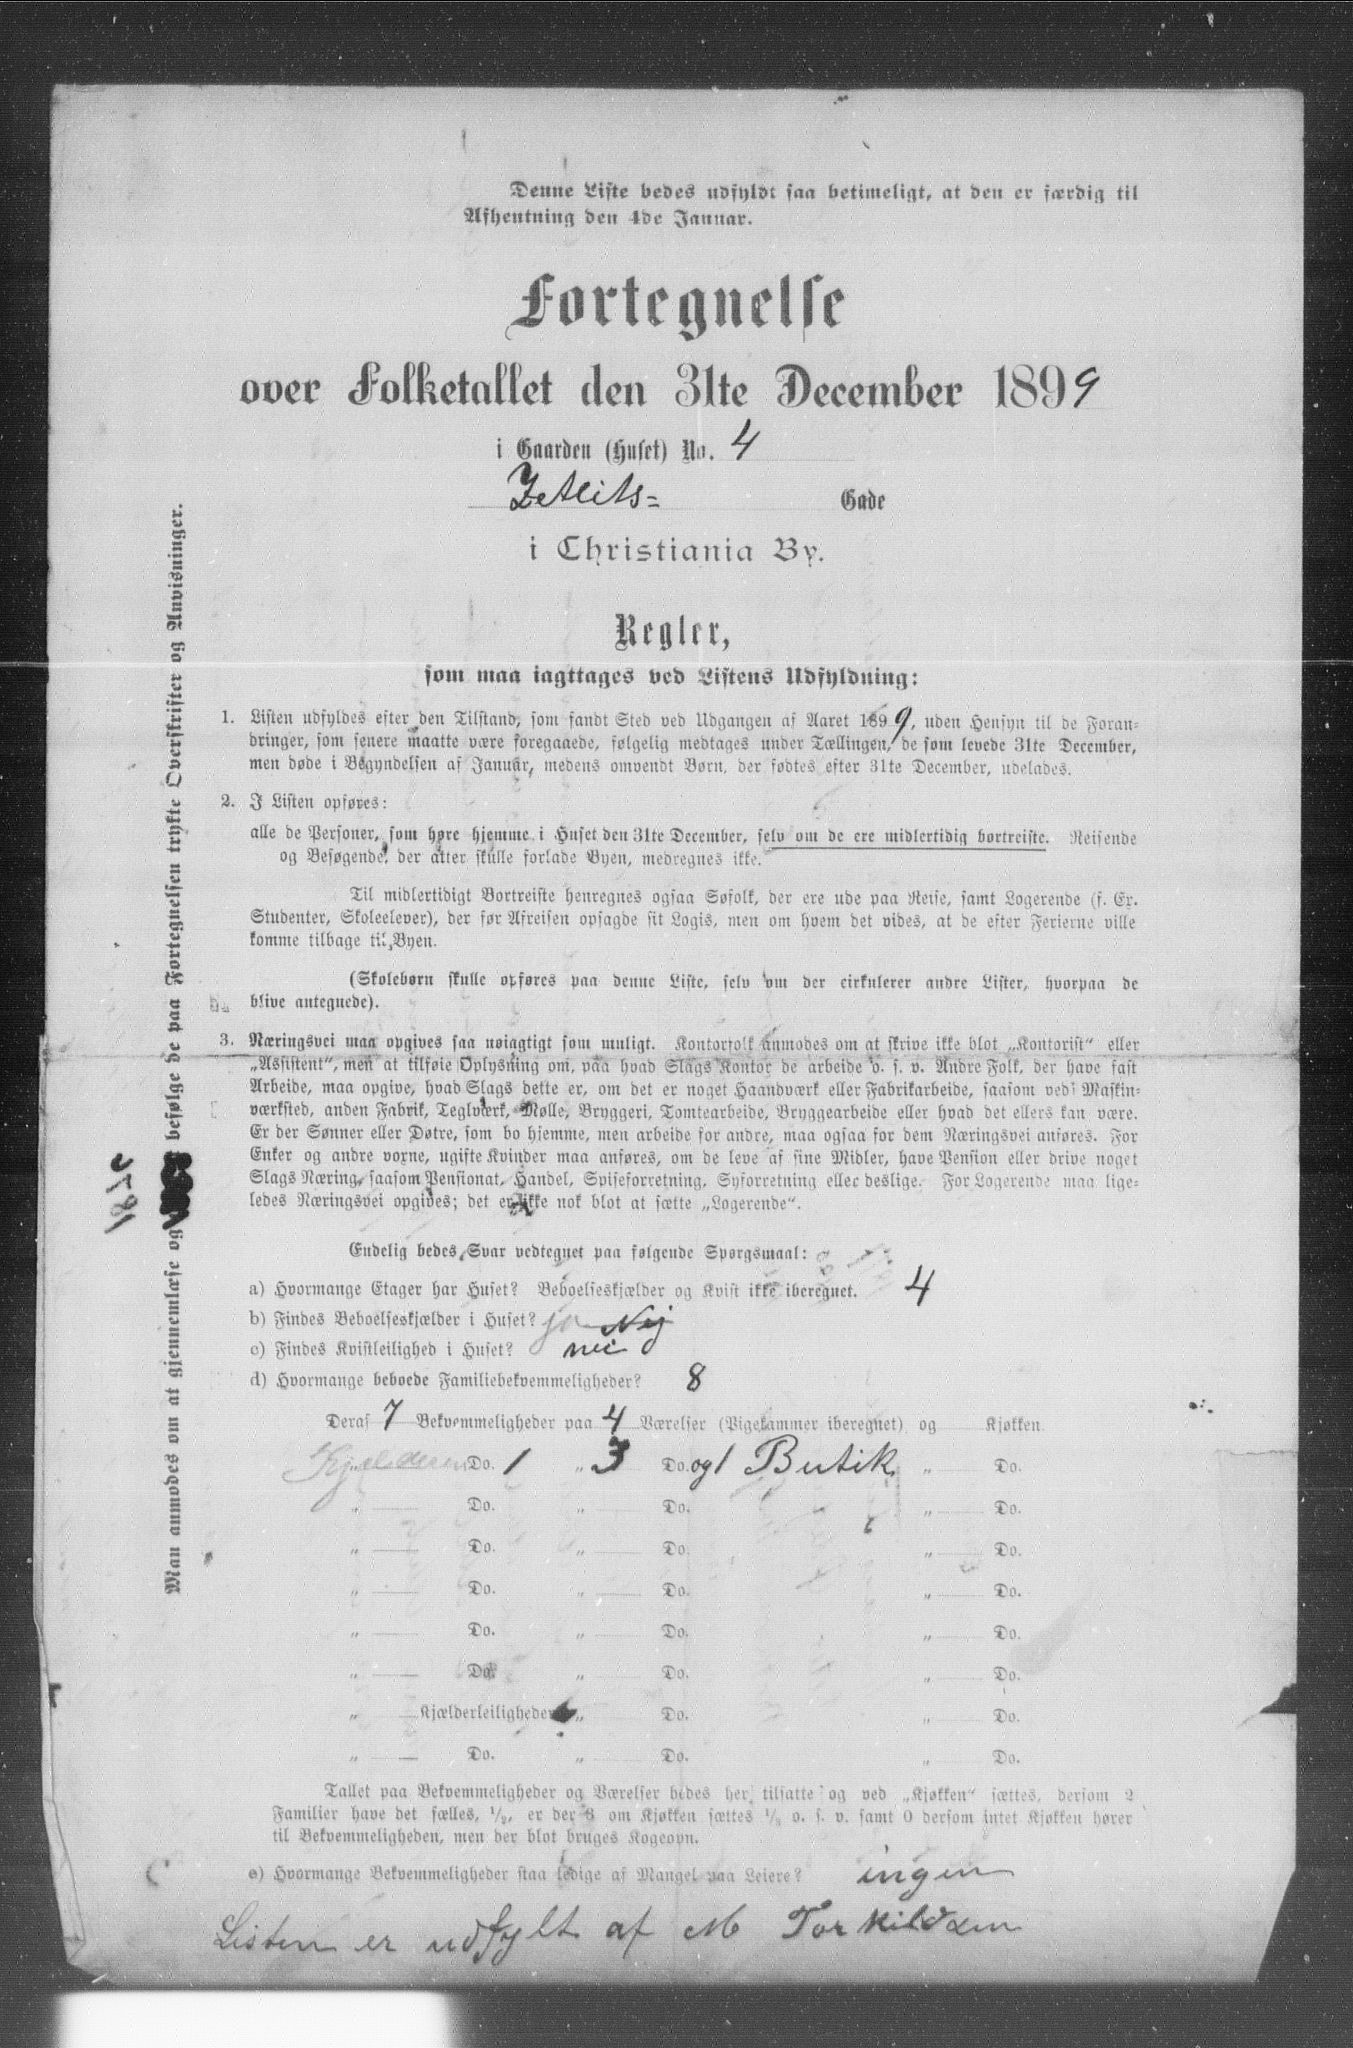 Denne Liste bedes udfyldt saa betimeligt, at den er færdig til
Afhentning den 4de Januar.
Fortegnelse
over Folketallet den 31te December 1899
i Gaarden (Huset) No. 4
Zetlits= Gade
i Christiania By.
Regler,
som maa iagttages ved Listens Udfyldning:
1. Listen udfyldes efter den Tilstand, som fandt Sted ved Udgangen af Aaret 1899, uden Hensyn til de Foran-
dringer, som senere maatte være foregaaede, følgelig medtages under Tællingen, de som levede 31te December,
men døde i Begyndelsen af Januar, medens omvendt Børn, der fødtes efter 31te December, udelades.
2. I Listen opføres:
alle de Personer, som høre hjemme i Huset den 31te December, selv om de ere midlertidig bortreiste. Reisende
og Besøgende, der atter skulle forlade Byen, medregnes ikke.
Til midlertidigt Bortreiste henregnes ogsaa Søfolk, der ere ude paa Reise, samt Logerende (f. Ex.
Studenter, Skoleelever), der før Afreisen opsagde sit Logis, men om hvem det vides, at de efter Ferierne ville
komme tilbage til Byen.
(Skolebørn skulle opføres paa denne Liste, selv om der cirkulerer andre Lister, hvorpaa de
blive antegnede).
3. Næringsvei maa opgives saa nøiagtigt som muligt. Kontorfolk anmodes om at skrive ikke blot „Kontorist“ eller
„Assistent“, men at tilføie Oplysning om, paa hvad Slags Kontor de arbeide o. s. v. Andre Folk, der have fast
Arbeide, maa opgive, hvad Slags dette er, om det er noget Haandværk eller Fabrikarbeide, saasom ved Maskin-
værksted, anden Fabrik, Teglværk, Mølle, Bryggeri, Tomtearbeide, Bryggearbeide eller hvad det ellers kan være.
Er der Sønner eller Døtre, som bo hjemme, men arbeide for andre, maa ogsaa for dem Næringsvei anføres. For
Enker og andre voxne, ugifte Kvinder maa anføres, om de leve af sine Midler, have Pension eller drive noget
Slags Næring, saasom Pensionat, Handel, Spiseforretning, Syforretning eller deslige. For Logerende maa lige-
ledes Næringsvei opgives; det er ikke nok blot at sætte „Logerende“.
Endelig bedes Svar vedtegnet paa følgende Spørgsmaal:
a) Hvormange Etager har Huset? Beboelseskjælder og Kvist ikke iberegnet. 4
b) Findes Beboelseskjælder i Huset? ja Nej
c) Findes Kvistleilighed i Huset? nei
d) Hvormange beboede Familiebekvemmeligheder? 8
Deraf 7 Bekvemmeligheder paa 4 Værelser (Pigekammer iberegnet) og Kjøkken.
Kjælderen Do. 1 „ 3 Do. og 1 Butik „ Do.
„ Do. „ Do. „ Do.
„ Do. „ Do. „ Do.
„ Do. „ Do. „ Do.
„ Do. „ Do. „ Do.
„ Do. „ Do. „ Do.
„ Kjælderleiligheder „ Do. „ Do.
„ Do. „ Do. „ Do.
Tallet paa Bekvemmeligheder og Værelser bedes her tilsatte og ved „Kjøkken“ sættes, dersom 2
Familier have det fælles, 1/2, er der 3 om Kjøkken sættes 1/3 o. s. v. samt 0 dersom intet Kjøkken hører
til Bekvemmeligheden, men der blot bruges Kogeovn.
e) Hvormange Bekvemmeligheder staa ledige af Mangel paa Leiere? ingen
Listen er udfylt af M Torkildsen
Man anmodes om at gjennemlæse og befølge de paa Fortegnelsen trykte Overskrifter og Anvisninger.